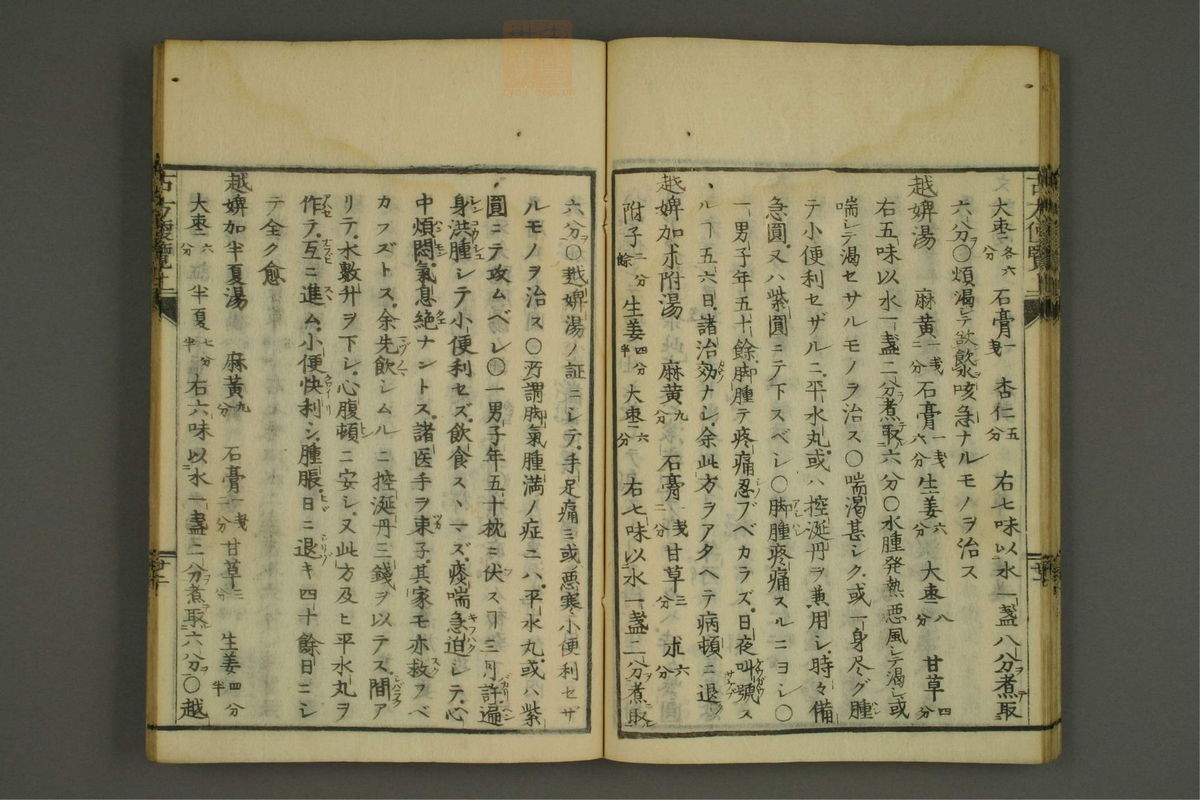 大棗 各六分 石膏 一戔 杏仁 五分 右七味以水一盞八分煮取
六分〇煩渇シテ欲飲水咳急ナルモノヲ治ス
越婢湯 麻黄 一戔二分 石膏 一戔六分 生姜 六分 大棗 八分 甘草 四分
右五味以水一盞二分煮取六分〇水腫発熱悪風シテ渇シ或
喘シテ渇セサルモノヲ治ス〇喘渇甚シク或一身尽グ腫
テ小便利セザルニ平水丸或ハ控涎丹ヲ兼用シ時々備
急圓又ハ紫圓ニテ下スベシ〇脚腫疼痛スルニヨシ〇
一男子年五十餘脚腫テ疼痛忍ブベカラズ日夜叫號ス
ルヿ五六日諸治効ナシ余此方ヲアタヘテ病頓ニ退
越婢加朮附湯 麻黄 九分 石膏 一戔二分 甘草 三分 朮 六分
附子 二分 生姜 四分半 大棗 六分 右七味以水一盞二分煮取
六分〇越婢湯ノ証ニシテ手足痛ミ或悪寒小便利セザ
ルモノヲ治ス〇所謂脚氣腫満ノ症ニハ平水丸或ハ紫
圓ニテ攻ムベシ〇一男子年五十枕ニ伏スヿ三月許遍
身洪腫シテ小便利セズ飲食スヽマズ痰喘急迫シテ心
中煩悶氣息絶ナントス諸医手ヲ束子其家モ亦救フベ
カラズトス余先飲シムルニ控涎丹三錢ヲ以テス間ア
リテ水數升ヲ下シ心腹頓ニ安シ又此方及ヒ平水丸ヲ
作テ互ニ進ム小便快利シ腫脹日ニ退キ四十餘日ニシ
テ全ク愈
越婢加半夏湯 麻黄 九分 石膏 一戔二分 甘草 三分 生姜 四分半
大棗 六分 半夏 七分半 右六味以水一盞二分煮取六分〇越
古方便覽
廿二